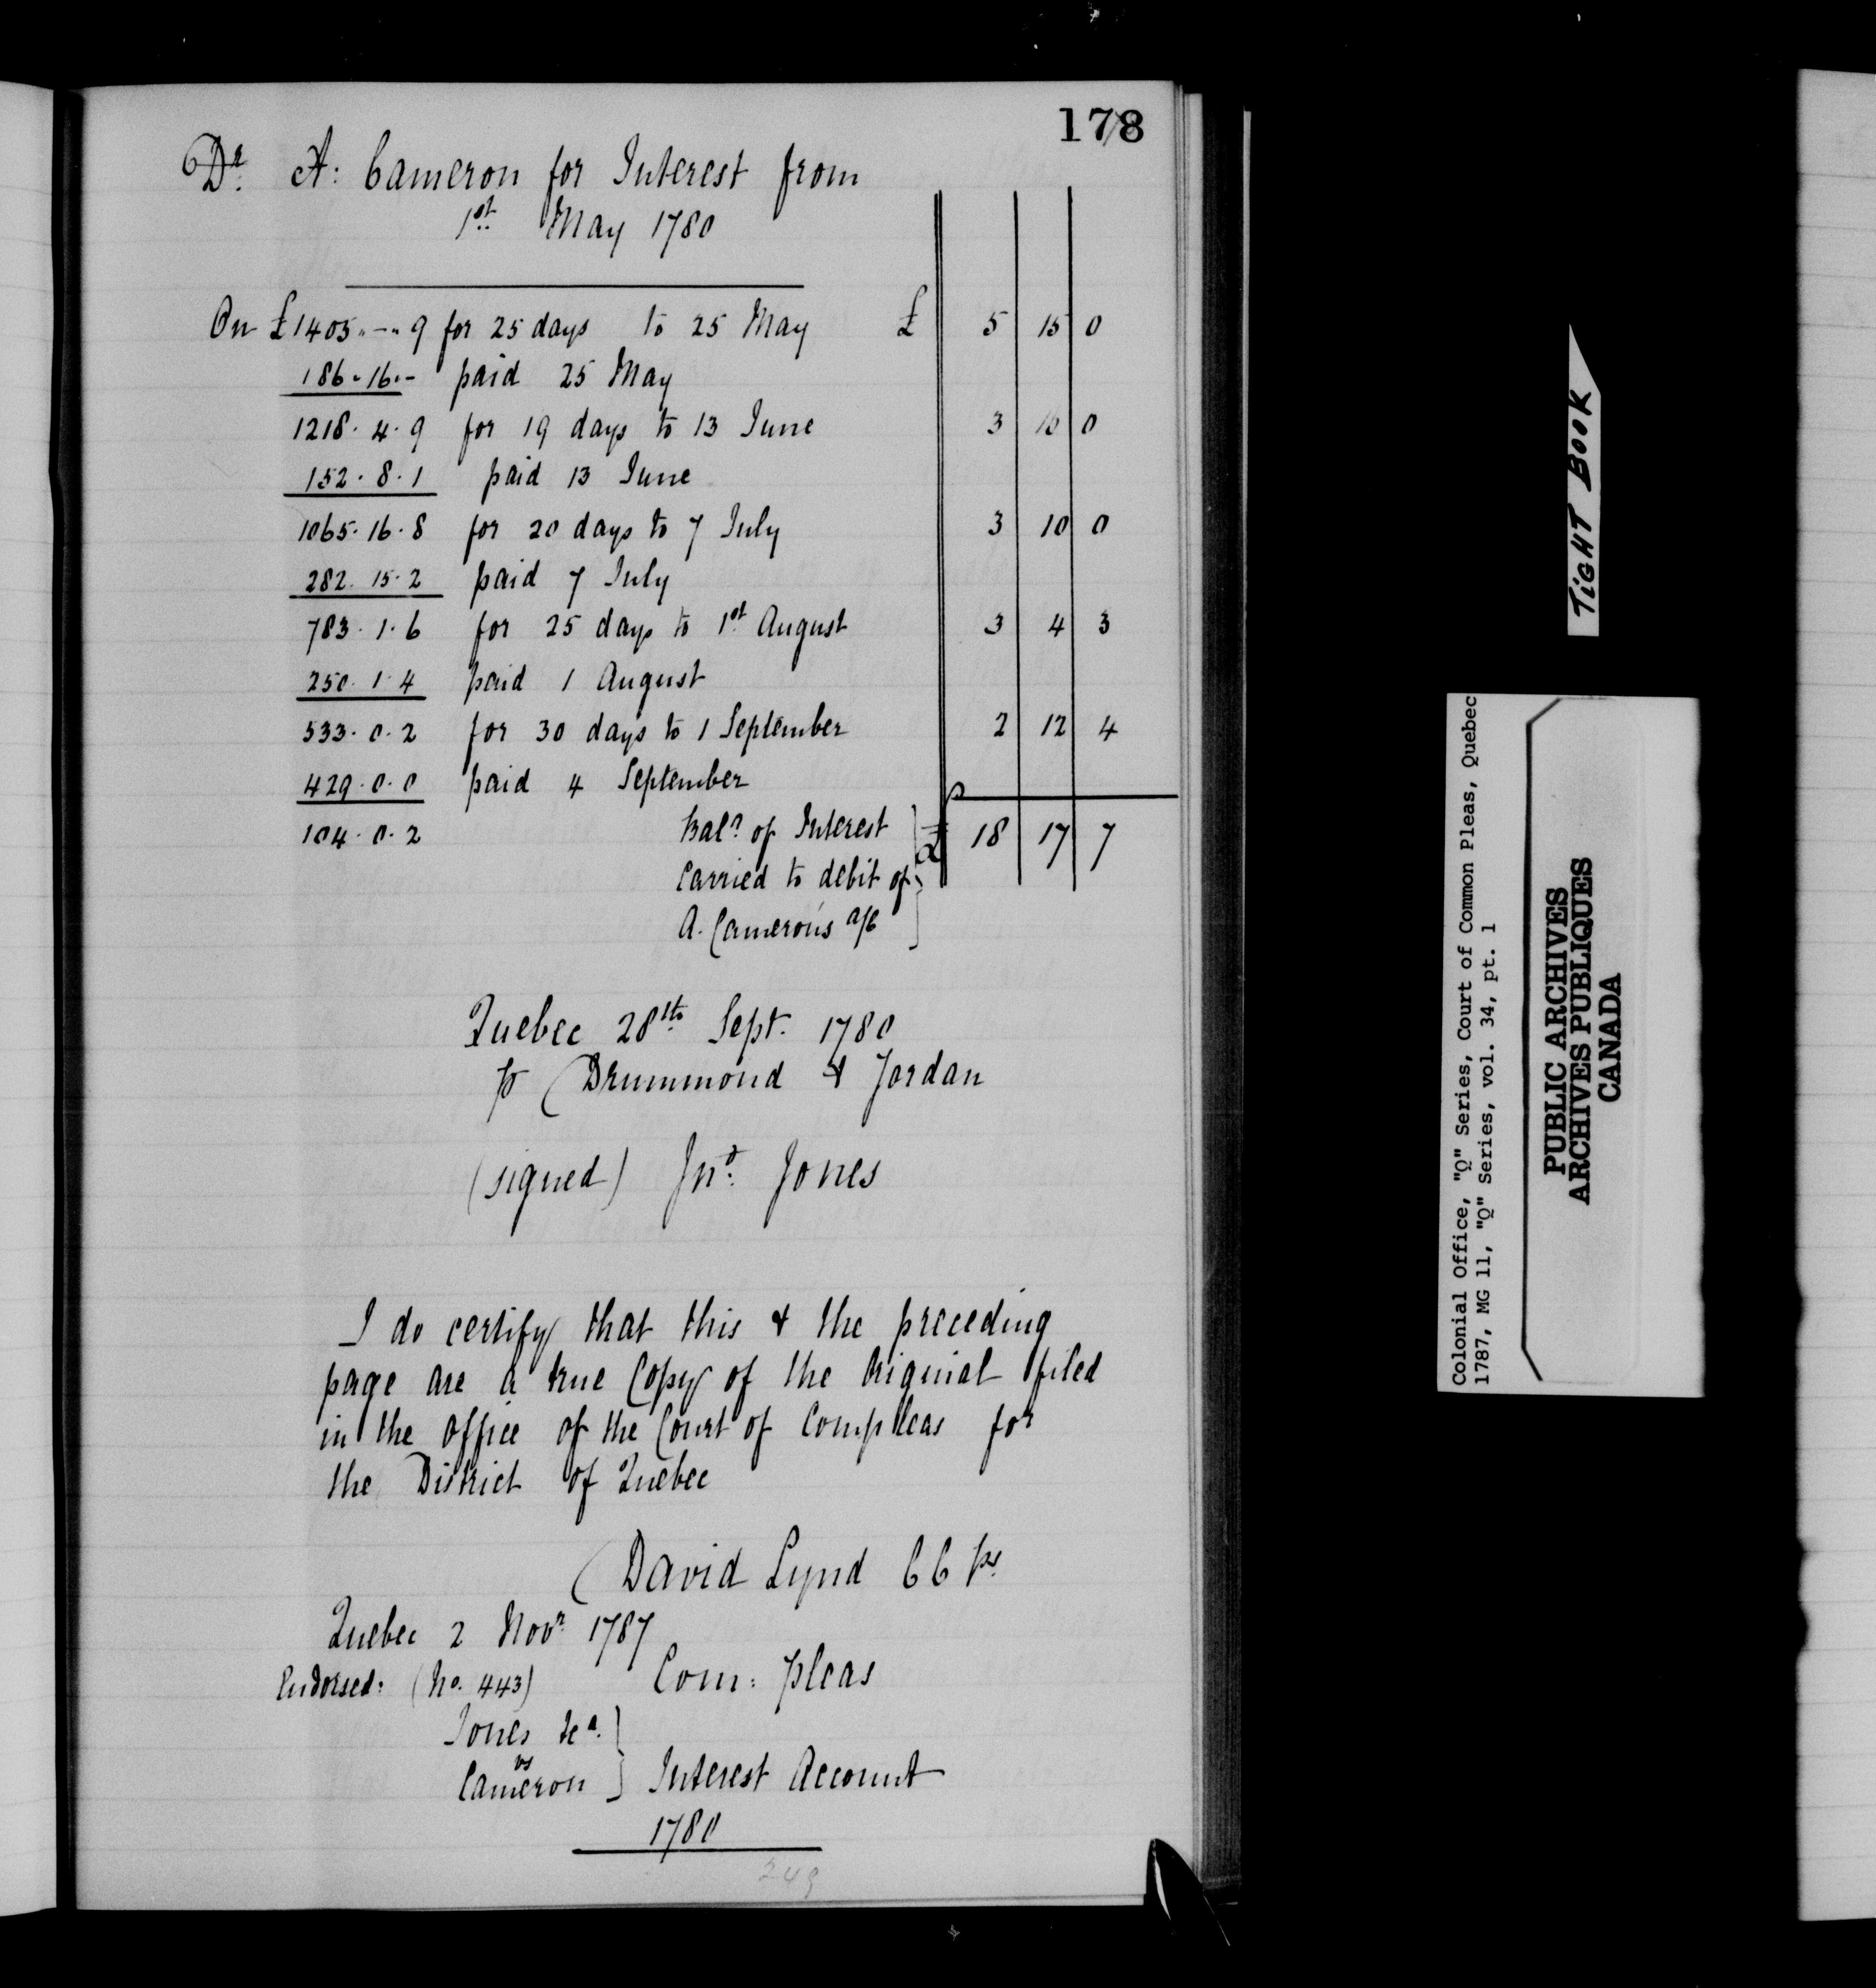 178
Dr. A: Cameron for Interest from
1st May 1780
On £1405 „ – „ 9 for 25 days to 25 May £ 5 15 0
186 . 16 . – paid 25 May
1218 . 4 . 9 for 19 days to 13 June 3 16 0
152 . 8 . 1 paid 13 June
1065 . 16 . 8 for 20 days to 7 July 3 10 0
282 . 15 . 2 paid 7 July
783 . 1 . 6 for 25 days to 1st August 3 4 3
250 . 1 . 4 paid 1 August
533 . 0 . 2 for 30 days to 1 September 2 12 4
429 . 0 . 0 paid 4 September
104 . 0 . 2 Bale. of Interest £ 18 17 7
Carried to debit of
A. Cameron's a/c
Quebec 28th Sept. 1780
p Drummond & Jordan
(signed) Jno. Jones
I do certify that this & the preceding
page are a true Copy of the Original filed
in the office of the Court of Com pleas for
the District of Quebec
David Lynd C C ps
Quebec 2 Novr. 1787
Endorsed: (No. 443) Com: pleas
Jones &ca.
vs
Cameron } Interest Account
1780
249
TIGHT BOOK
Colonial Office, "Q" Series, Court of Common Pleas, Quebec
1787, MG 11, "Q" Series, vol. 34, pt. 1
PUBLIC ARCHIVES
ARCHIVES PUBLIQUES
CANADA